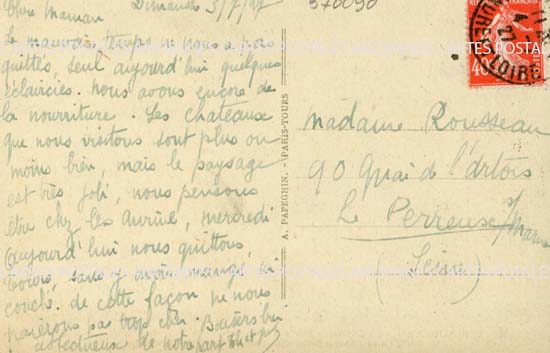 Chère Maman Dimanche 3/7/27
le mauvais temps ne nous a pas
quittés, seul aujourd'hui quelques
éclaircies. nous avons encore de
la nourriture. Les chateaux
que nous visitons sont plus ou
moins bien, mais le paysage
est très joli, nous pensons
être chez les mercredi
aujourd'hui nous quittons
Tours, sans y avoir mangé ni
couché. de cette façon ne nous
pas trop cher. Baisers bien
affectueux de notre part
A. PAPEGHIN. - PARIS-TOURS
570090
40
LOIRE
Madame Rousseau
90 Quai de l'Artois
Le Perreux s/Marne
(Seine)